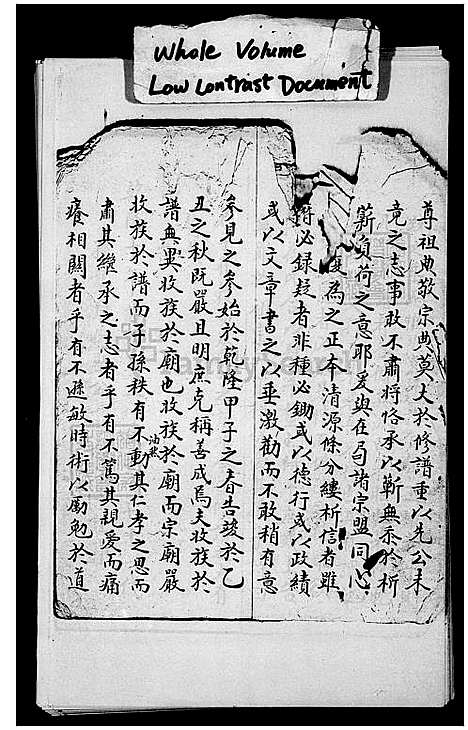 Whole Volume
Low Contrast Document
尊祖典敬宗典莫大於修譜重以先公未
竟之志事敢不肅將恪承以蘄無忝於析
薪負荷之意耶爰與在局諸宗盟同心
度為之正本清源條分縷析信者雖
必錄疑者非種必鋤或以德行或以政績
或以文章書之以垂激勸而不敢稍有意
參見之參始於乾隆甲子之春告竣於乙
丑之秋既嚴且明庶克稱善成焉夫收族於
譜典異收族於廟也收族於廟而宗廟嚴
收族於譜而子孫秩有不油然動其仁孝之思而
肅其繼承之志者乎有不篤其親愛而痛
癢相關者乎有不遜敏時術以勵勉於道